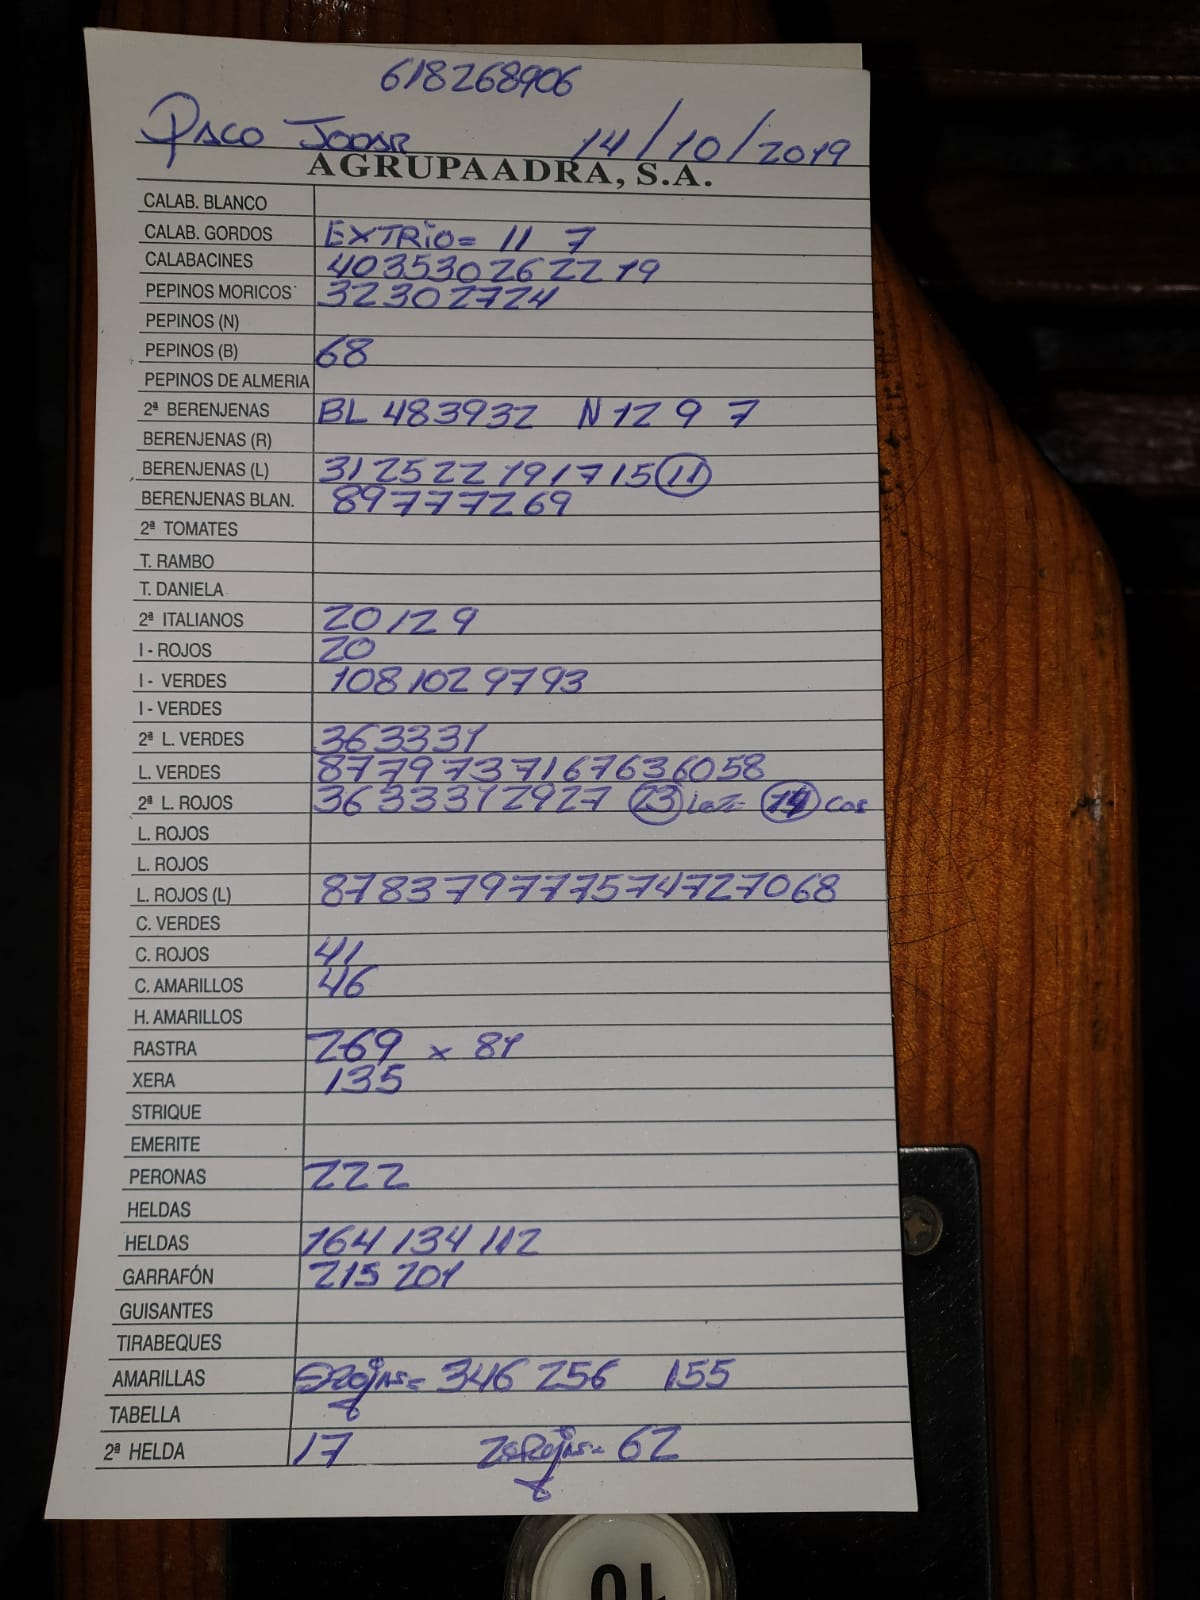 618268906
PACO JODAR 14/10/2019
AGRUPAADRA, S.A.
CALAB. BLANCO
CALAB. GORDOS EXTRIO= 11 7
CALABACINES 40353026222219
PEPINOS MORICOS 32302724
PEPINOS (N)
PEPINOS (B) 68
PEPINOS DE ALMERIA
2ª BERENJENAS BL 483932 N 12 9 7
BERENJENAS (R)
BERENJENAS (L) 312522191715 11
BERENJENAS BLAN. 89777269
2ª TOMATES
T. RAMBO
T. DANIELA
2ª ITALIANOS 20 12 9
I - ROJOS 20
I - VERDES 108 102 9793
I - VERDES
2ª L. VERDES 363331
L. VERDES 8779737167636058
2ª L. ROJOS 3633312927 23 14
L. ROJOS
L. ROJOS
L. ROJOS (L) 878379777574727068
C. VERDES
C. ROJOS 41
C. AMARILLOS 46
H. AMARILLOS
RASTRA 269 x 81
XERA 135
STRIQUE
EMERITE
PERONAS 222
HELDAS
HELDAS 164 134 112
GARRAFÓN 215 201
GUISANTES
TIRABEQUES
AMARILLAS ROJAS= 346 256 155
TABELLA
2ª HELDA 17 ROJAS= 62
10